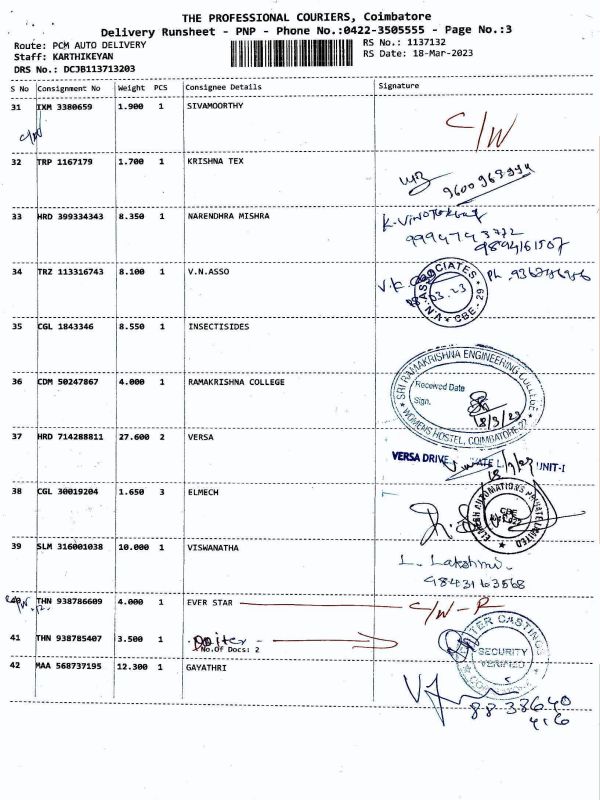 THE PROFESSIONAL COURIERS, Coimbatore
Delivery Runsheet - PNP - Phone No.:0422-3505555 - Page No.:3
Route: PCM AUTO DELIVERY
RS No.: 1137132
Staff: KARTHIKEYAN
RS Date: 18-Mar-2023
DRS No.: DCJB113713203
S No Consignment No Weight PCS Consignee Details Signature
31 IXM 3380659 1.900 1 SIVAMOORTHY
C/W
C/W
32 TRP 1167179 1.700 1 KRISHNA TEX
33 HRD 399334343 8.350 1 NARENDHRA MISHRA
9894161507
34 TRZ 113316743 8.100 1 V.N.ASSO
V.N.ASSOCIATES
CBE-29
35 CGL 1843346 8.550 1 INSECTISIDES
36 CDM 50247867 4.000 1 RAMAKRISHNA COLLEGE
SRI RAMAKRISHNA ENGINEERING COLLEGE
Received Date
Sign.
18/3/23
WOMENS HOSTEL, COIMBATORE-22
37 HRD 714288811 27.600 2 VERSA
VERSA DRIVE UNIT-I
38 CGL 30019204 1.650 3 ELMECH
39 SLM 316001038 10.000 1 VISWANATHA
L. Lakshmi.
9843163568
THN 938786609 4.000 1 EVER STAR
C/W - R
41 THN 938785407 3.500 1
No.Of Docs: 2
SECURITY
VERIFIED
42 MAA 568737195 12.300 1 GAYATHRI
8838640
416